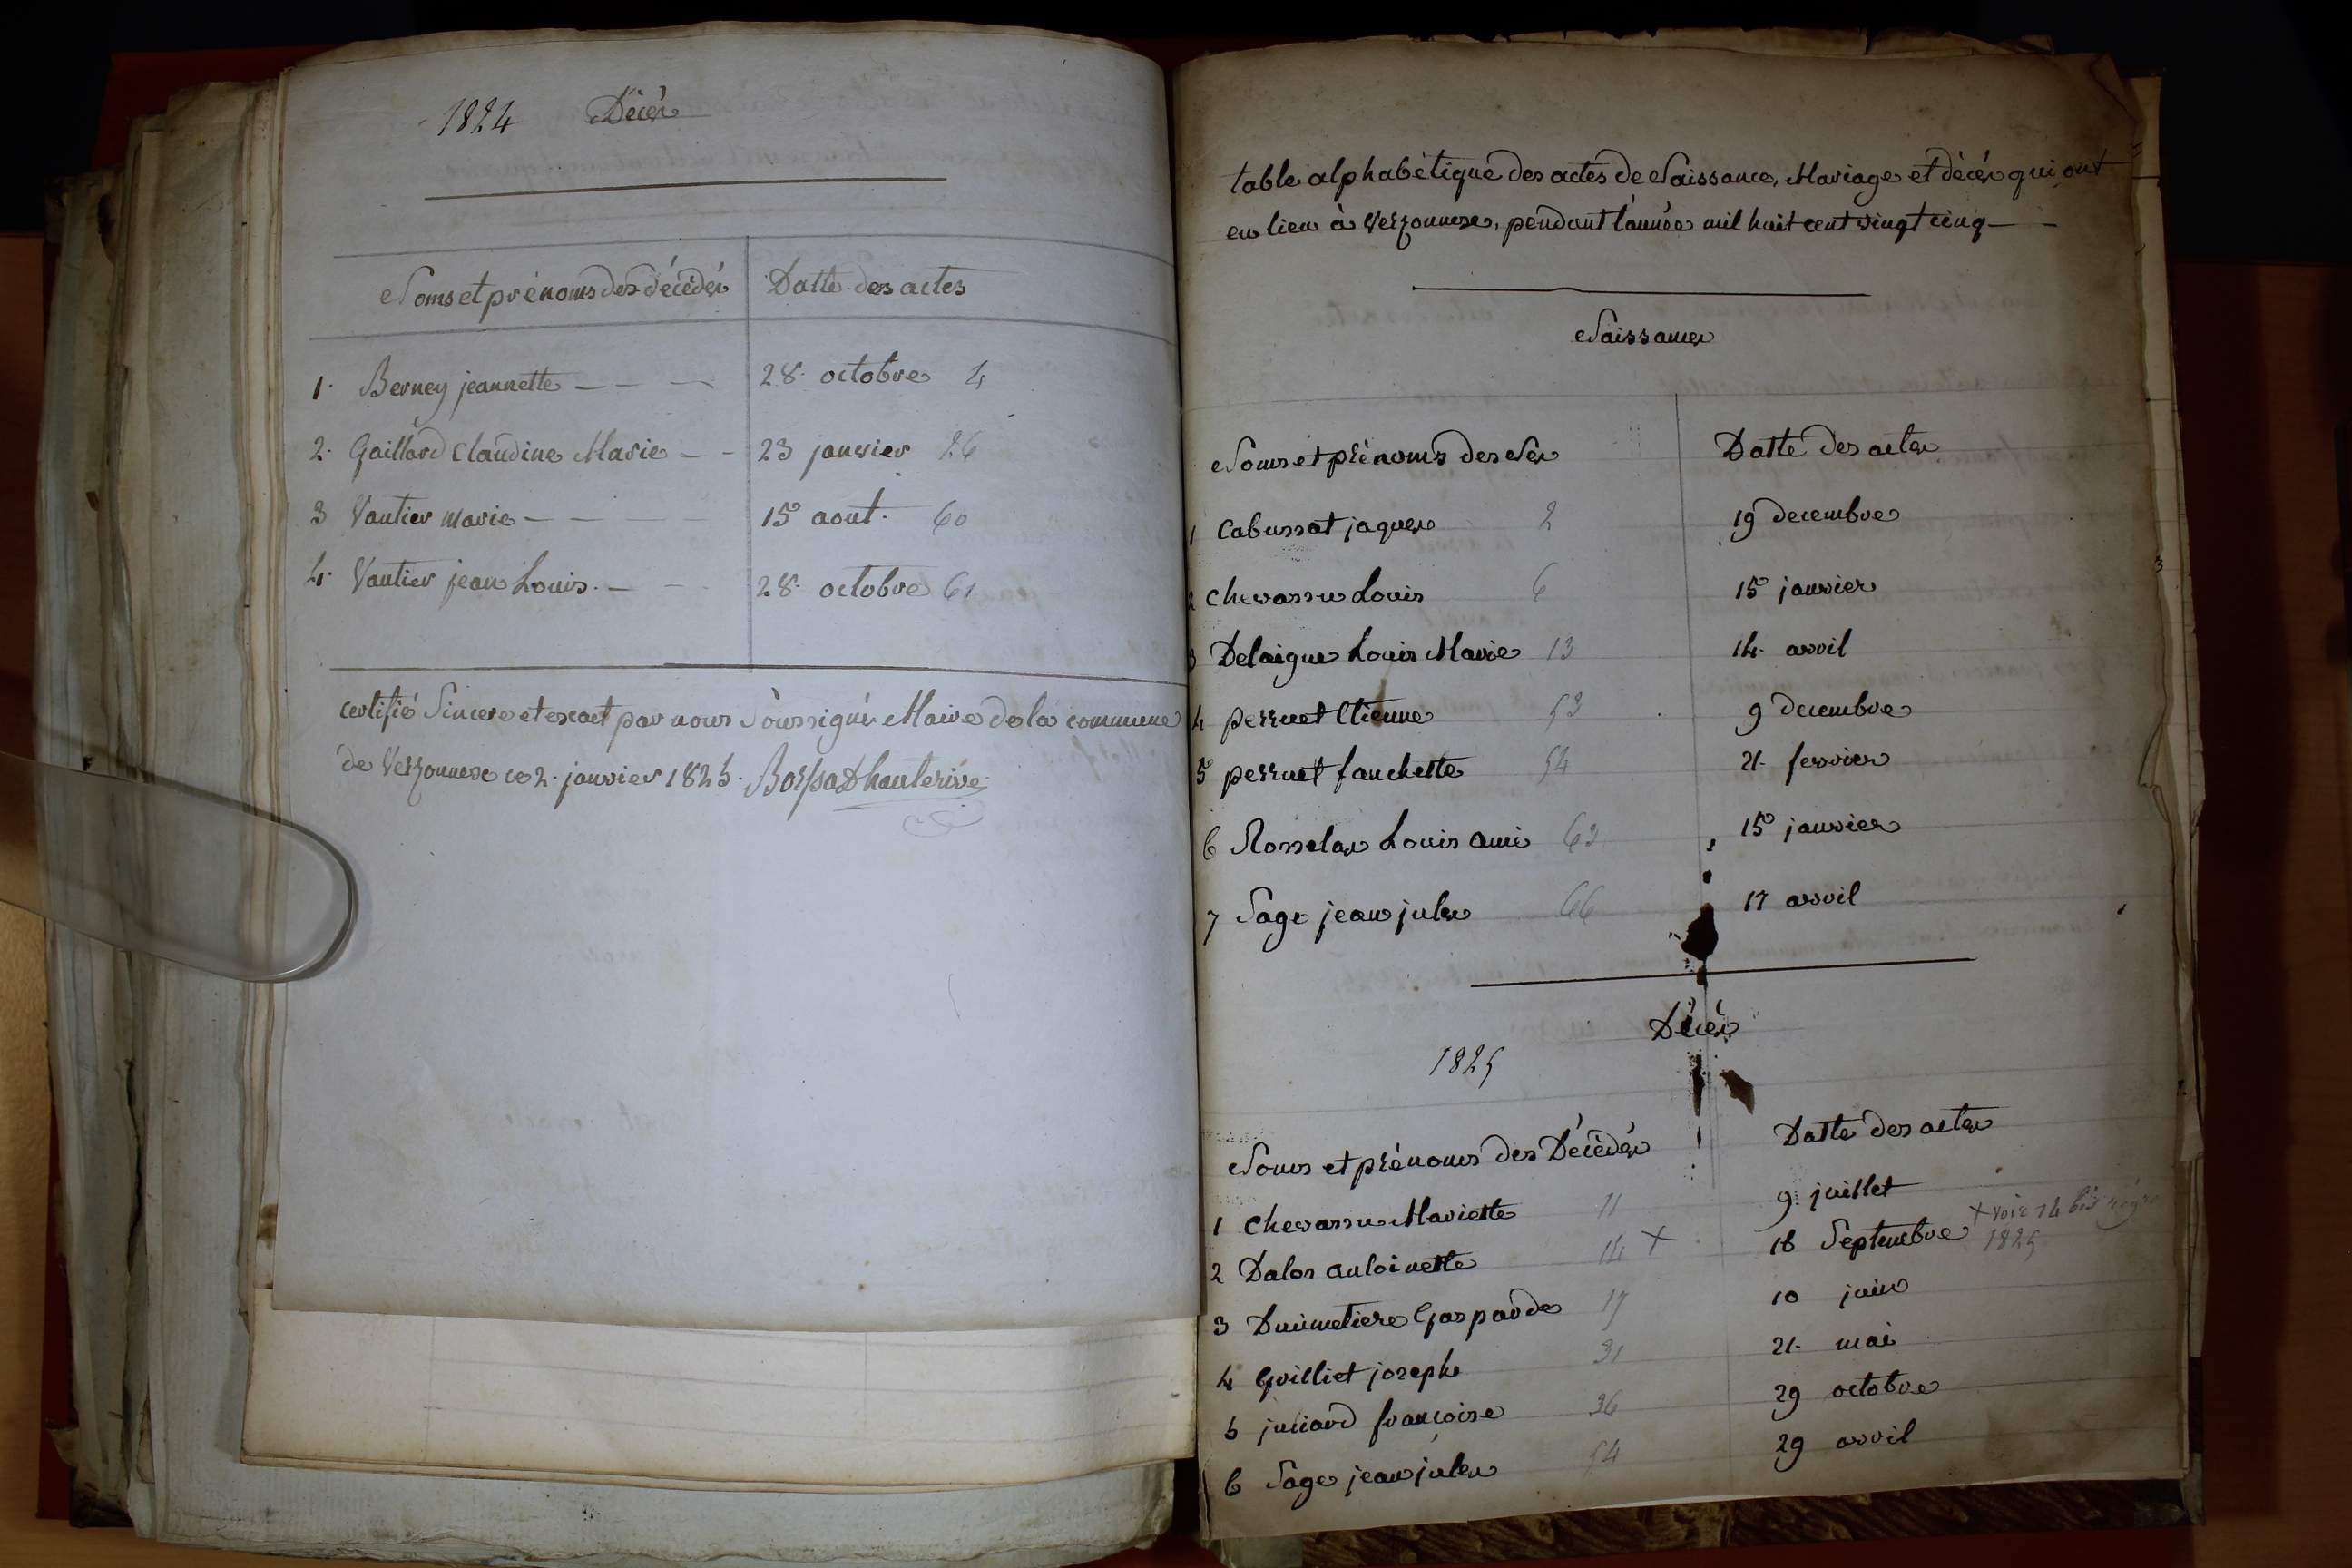 1824 Décès
Noms et prénoms des décédés Datte des actes
1. Berney jeannette - - - 28. octobre 4
2. Gaillard Claudine Marie - - 23 janvier 26
3 Vautier Marie - - - - 15 aout. 60
4. Vautier jean Louis. - - 28. octobre 61
certifié Sincere et exact par nous Soussigné Maire de la commune
de Vezzonnex ce 2. janvier 1825.
table alphabétique des actes de Naissance, Mariage et décès qui ont
eu lieu à Vezzonnex, pendant l'année mil huit cent vingt cinq - -
Naissances
Noms et prénoms des Nés Datte des actes
1 Cabussat jaques 2 19 decembre
2 Chevassu Louis 6 15 janvier
3 Delaigue Louis Marie 13 14. avril
4 perruet Etienne 53 9 decembre
5 perruet fanchette 54 21. fevrier
6 Rosselas Louis Ami 63 15 janvier
7 Sage jean jules 66 17 avril
Décès
1825
Noms et prénoms des Décédés Datte des actes
1 Chevassu Mariette 11 9. juillet
2 Dalos antoinette 14 + 16 Septembre + voir 14 bis
1825
3 Dumetiere Gasparde 17 10 juin
4 Grilliet joseph 31 21. mai
5 juliard françoise 36 29 octobre
6 Sage jean jules 54 29 avril